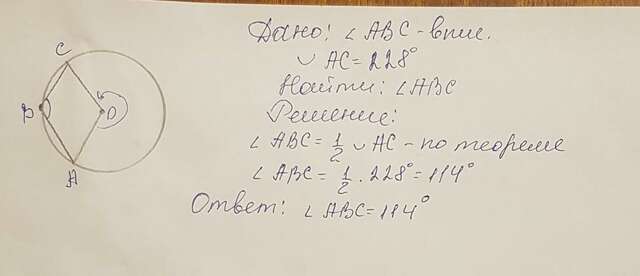 Дано: ∠ ABC - впис.
∪ AC = 228°
Найти: ∠ ABC
Решение:
∠ ABC = 1/2 ∪ AC - по теореме
∠ ABC = 1/2 · 228° = 114°
Ответ: ∠ ABC = 114°
C
B
O
A